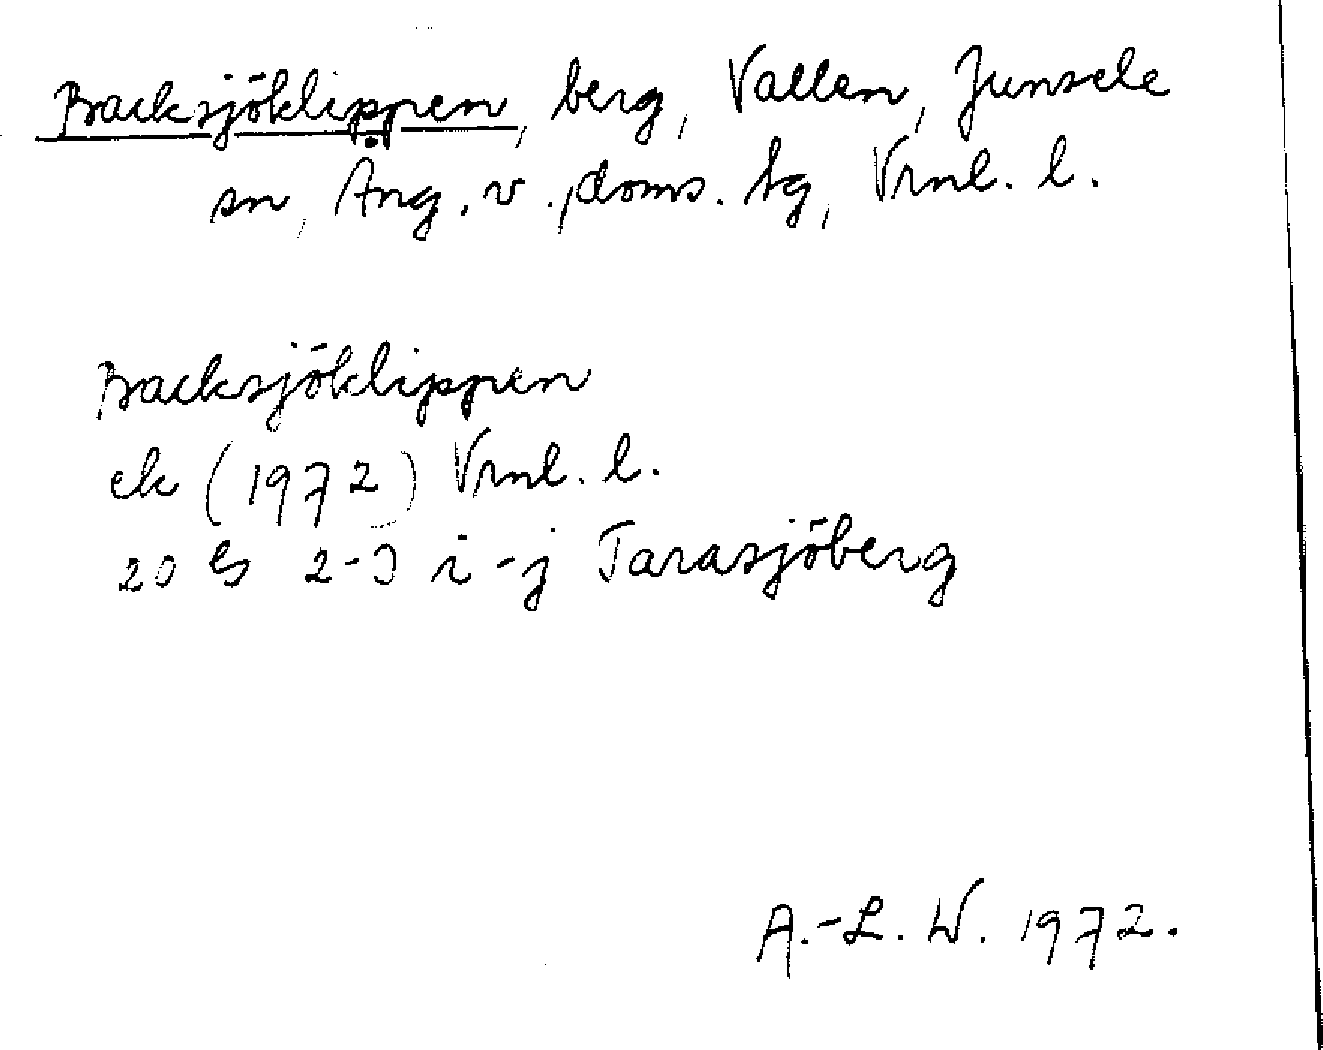 Backsjöklippen, berg, Vallen, Junsele
sn, Ång. v., doms. tg, Vrnl. l.
Backsjöklippen
ek (1972) Vrnl. l.
20 G 2-3 i-j Tarasjöberg
A.-L. W. 1972.